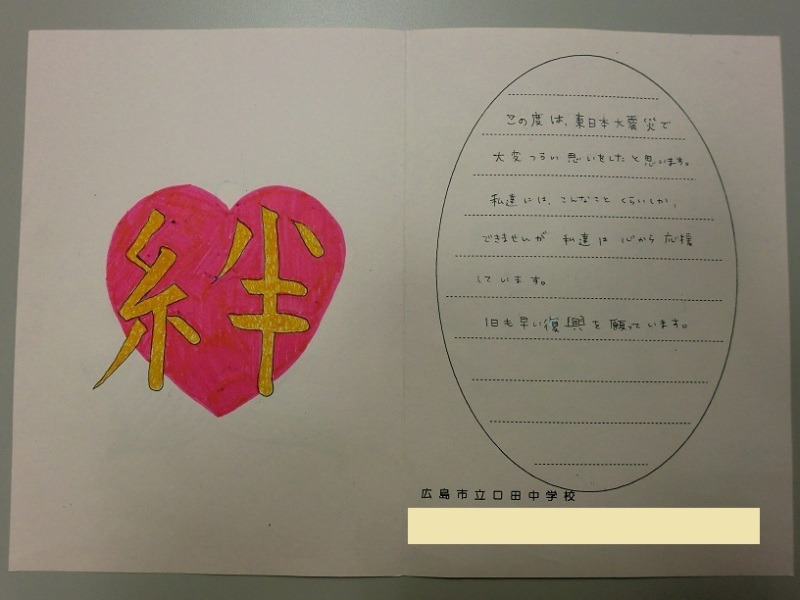 絆
この度は、東日本大震災で
大変つらい思いをしたと思います。
私達には、こんなことくらいしか、
できませんが私達は心から応援
しています。
1日も早い復興を願っています。
広島市立口田中学校